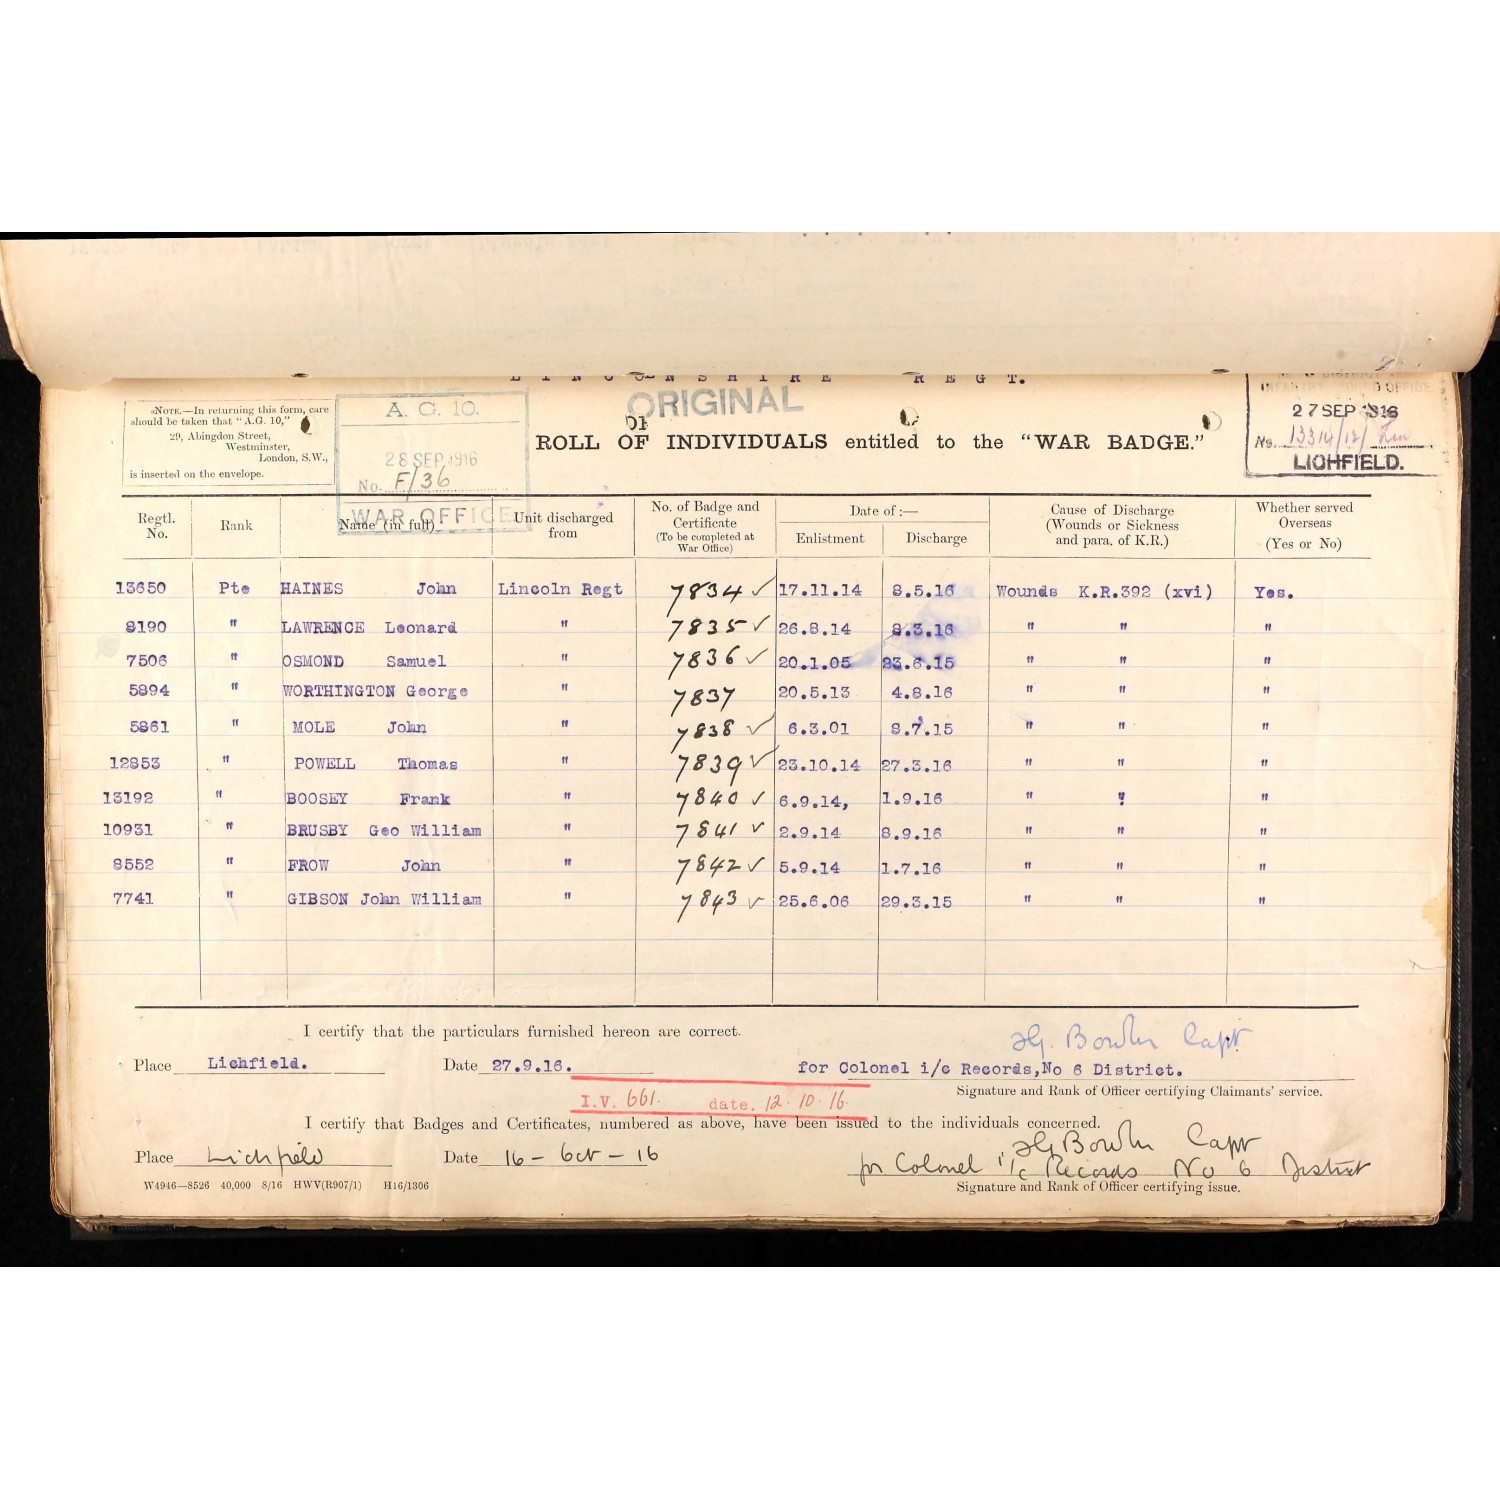 LINCOLNSHIRE REGT.
NOTE.—In returning this form, care
should be taken that "A.G. 10,"
29, Abingdon Street,
Westminster,
London, S.W.,
is inserted on the envelope.
A. G. 10.
28 SEP 1916
No. F/36
WAR OFFICE
ORIGINAL
ROLL OF INDIVIDUALS entitled to the "WAR BADGE."
INFANTRY RECORD OFFICE
27 SEP 1916
No. 13314/12/
LICHFIELD.
Regtl. No. Rank Name (in full) Unit discharged from No. of Badge and Certificate (To be completed at War Office) Date of :— Enlistment Discharge Cause of Discharge (Wounds or Sickness and para. of K.R.) Whether served Overseas (Yes or No)
13650 Pte HAINES John Lincoln Regt 7834 ✓ 17.11.14 8.5.16 Wounds K.R.392 (xvi) Yes.
8190 " LAWRENCE Leonard " 7835 ✓ 26.8.14 8.3.16 " " "
7506 " OSMOND Samuel " 7836 ✓ 20.1.05 23.6.15 " " "
5894 " WORTHINGTON George " 7837 20.5.13 4.8.16 " " "
5861 " MOLE John " 7838 ✓ 6.3.01 8.7.15 " " "
12853 " POWELL Thomas " 7839 ✓ 23.10.14 27.3.16 " " "
13192 " BOOSEY Frank " 7840 ✓ 6.9.14, 1.9.16 " " "
10931 " BRUSBY Geo William " 7841 ✓ 2.9.14 8.9.16 " " "
8552 " FROW John " 7842 ✓ 5.9.14 1.7.16 " " "
7741 " GIBSON John William " 7843 ✓ 25.6.06 29.3.15 " " "
I certify that the particulars furnished hereon are correct.
Bowler Capt
Place Lichfield. Date 27.9.16. for Colonel i/c Records, No 6 District.
Signature and Rank of Officer certifying Claimants' service.
I.V. 661. date. 12.10.16.
I certify that Badges and Certificates, numbered as above, have been issued to the individuals concerned.
Bowler Capt
Place Lichfield Date 16 - Oct - 16 for Colonel i/c Records No 6 District
Signature and Rank of Officer certifying issue.
W4946—8526 40,000 8/16 HWV(R907/1) H16/1306